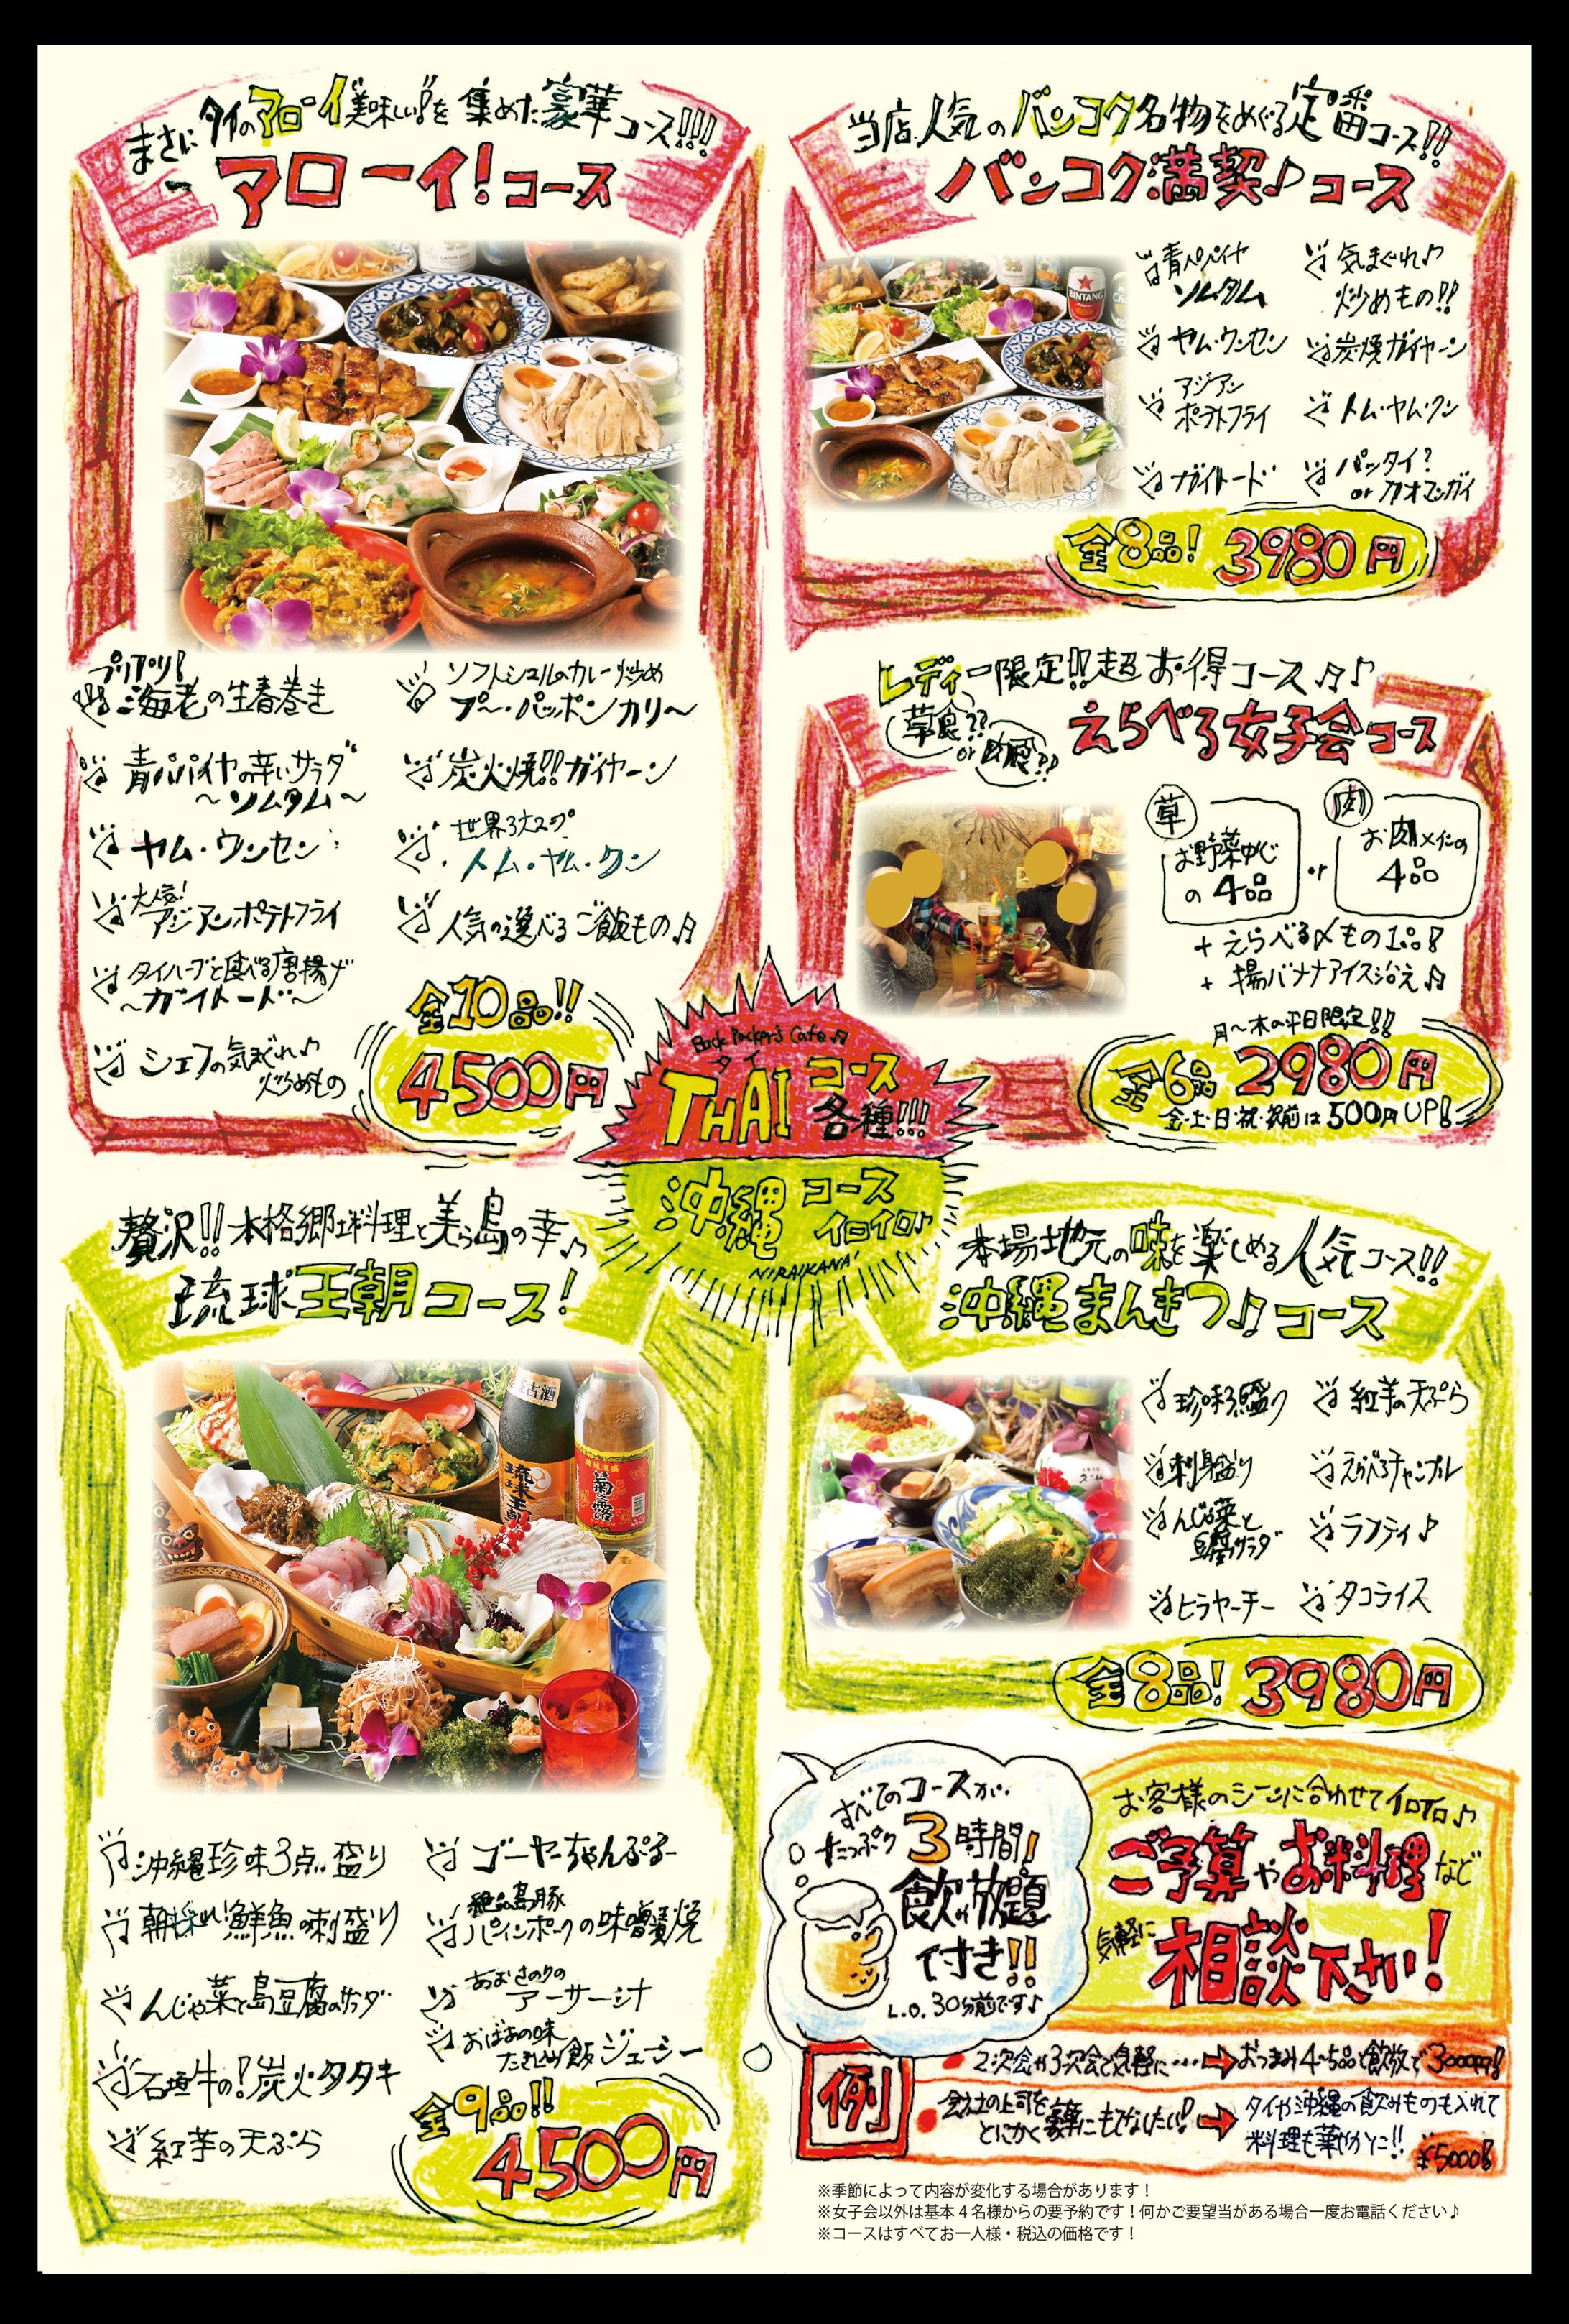 まさにタイのアローイ"美味しい"を集めた豪華コース!!!
アローイ!コース
プリプリ!
海老の生春巻き
青パパイヤの辛いサラダ
～ソムタム～
ヤム・ウンセン
大人気!
アジアンポテトフライ
タイハーブと食べる唐揚げ
～ガイトード～
シェフの気まぐれ♪
炒めもの
ソフトシェルのカレー炒め
プ～・パッポンカリ～
炭火焼!!ガイヤーン
世界3大スープ
トム・ヤム・クン
人気の選べるご飯もの♫
全10品!!
4500円
当店人気のバンコク名物をめぐる定番コース!!
バンコク満喫♪コース
青パパイヤ
ソムタム
ヤム・ウンセン
アジアン
ポテトフライ
ガイトード
気まぐれ♪
炒めもの!!
炭焼ガイヤーン
トム・ヤム・クン
パッタイ?
or カオマンガイ
全8品! 3980円
レディー限定!!超お得コース♫♪
草食??
or 肉食??
えらべる女子会コース
草
お野菜中心
の4品
or
肉
お肉メインの
4品
+ えらべる〆もの1品!
+ 揚バナナアイス添え♫
月～木の平日限定!!
全6品 2980円
金・土・日・祝・祝前は500円UP!
Back Packer's Cafe♫
タイ
THAI コース
各種!!!
沖縄 コース
イロイロ♪
NIRAIKANAI
贅沢!!本格郷土料理と美ら島の幸♪
琉球王朝コース!
古酒
琉球王朝
菊之露
沖縄珍味3点盛り
朝採れ!鮮魚の刺盛り
んじゃな菜と島豆腐のサラダ
石垣牛の!炭火タタキ
紅芋の天ぷら
ゴーヤーちゃんぷるー
絶品島豚
パインポークの味噌漬焼
あおさのりの
アーサー汁
おばあの味
たきこみ飯ジューシー
全9品!!
4500円
本場地元の味を楽しめる人気コース!!
沖縄まんきつ♪コース
珍味3点盛り
刺身盛り
んじゃな菜と
豆腐サラダ
ヒラヤーチー
紅芋の天ぷら
えらべるチャンプル
ラフティ♪
タコライス
全8品! 3980円
すべてのコースが、
たっぷり3時間!
飲み放題
付き!!
L.O.30分前です♪
お客様のシーンに合わせてイロイロ♪
ご予算やお料理など
気軽に
相談下さい!
例
2次会や3次会で気軽に・・・・➡おつまみ4~5品と飲放で3000円!
会社の上司を
とにかく豪華にもてなしたい!➡
タイや沖縄の飲みものも入れて
料理も華やかに!!
¥5000!
※季節によって内容が変化する場合があります！
※女子会以外は基本４名様からの要予約です！何かご要望当がある場合一度お電話ください♪
※コースはすべてお一人様・税込の価格です！
BINTANG